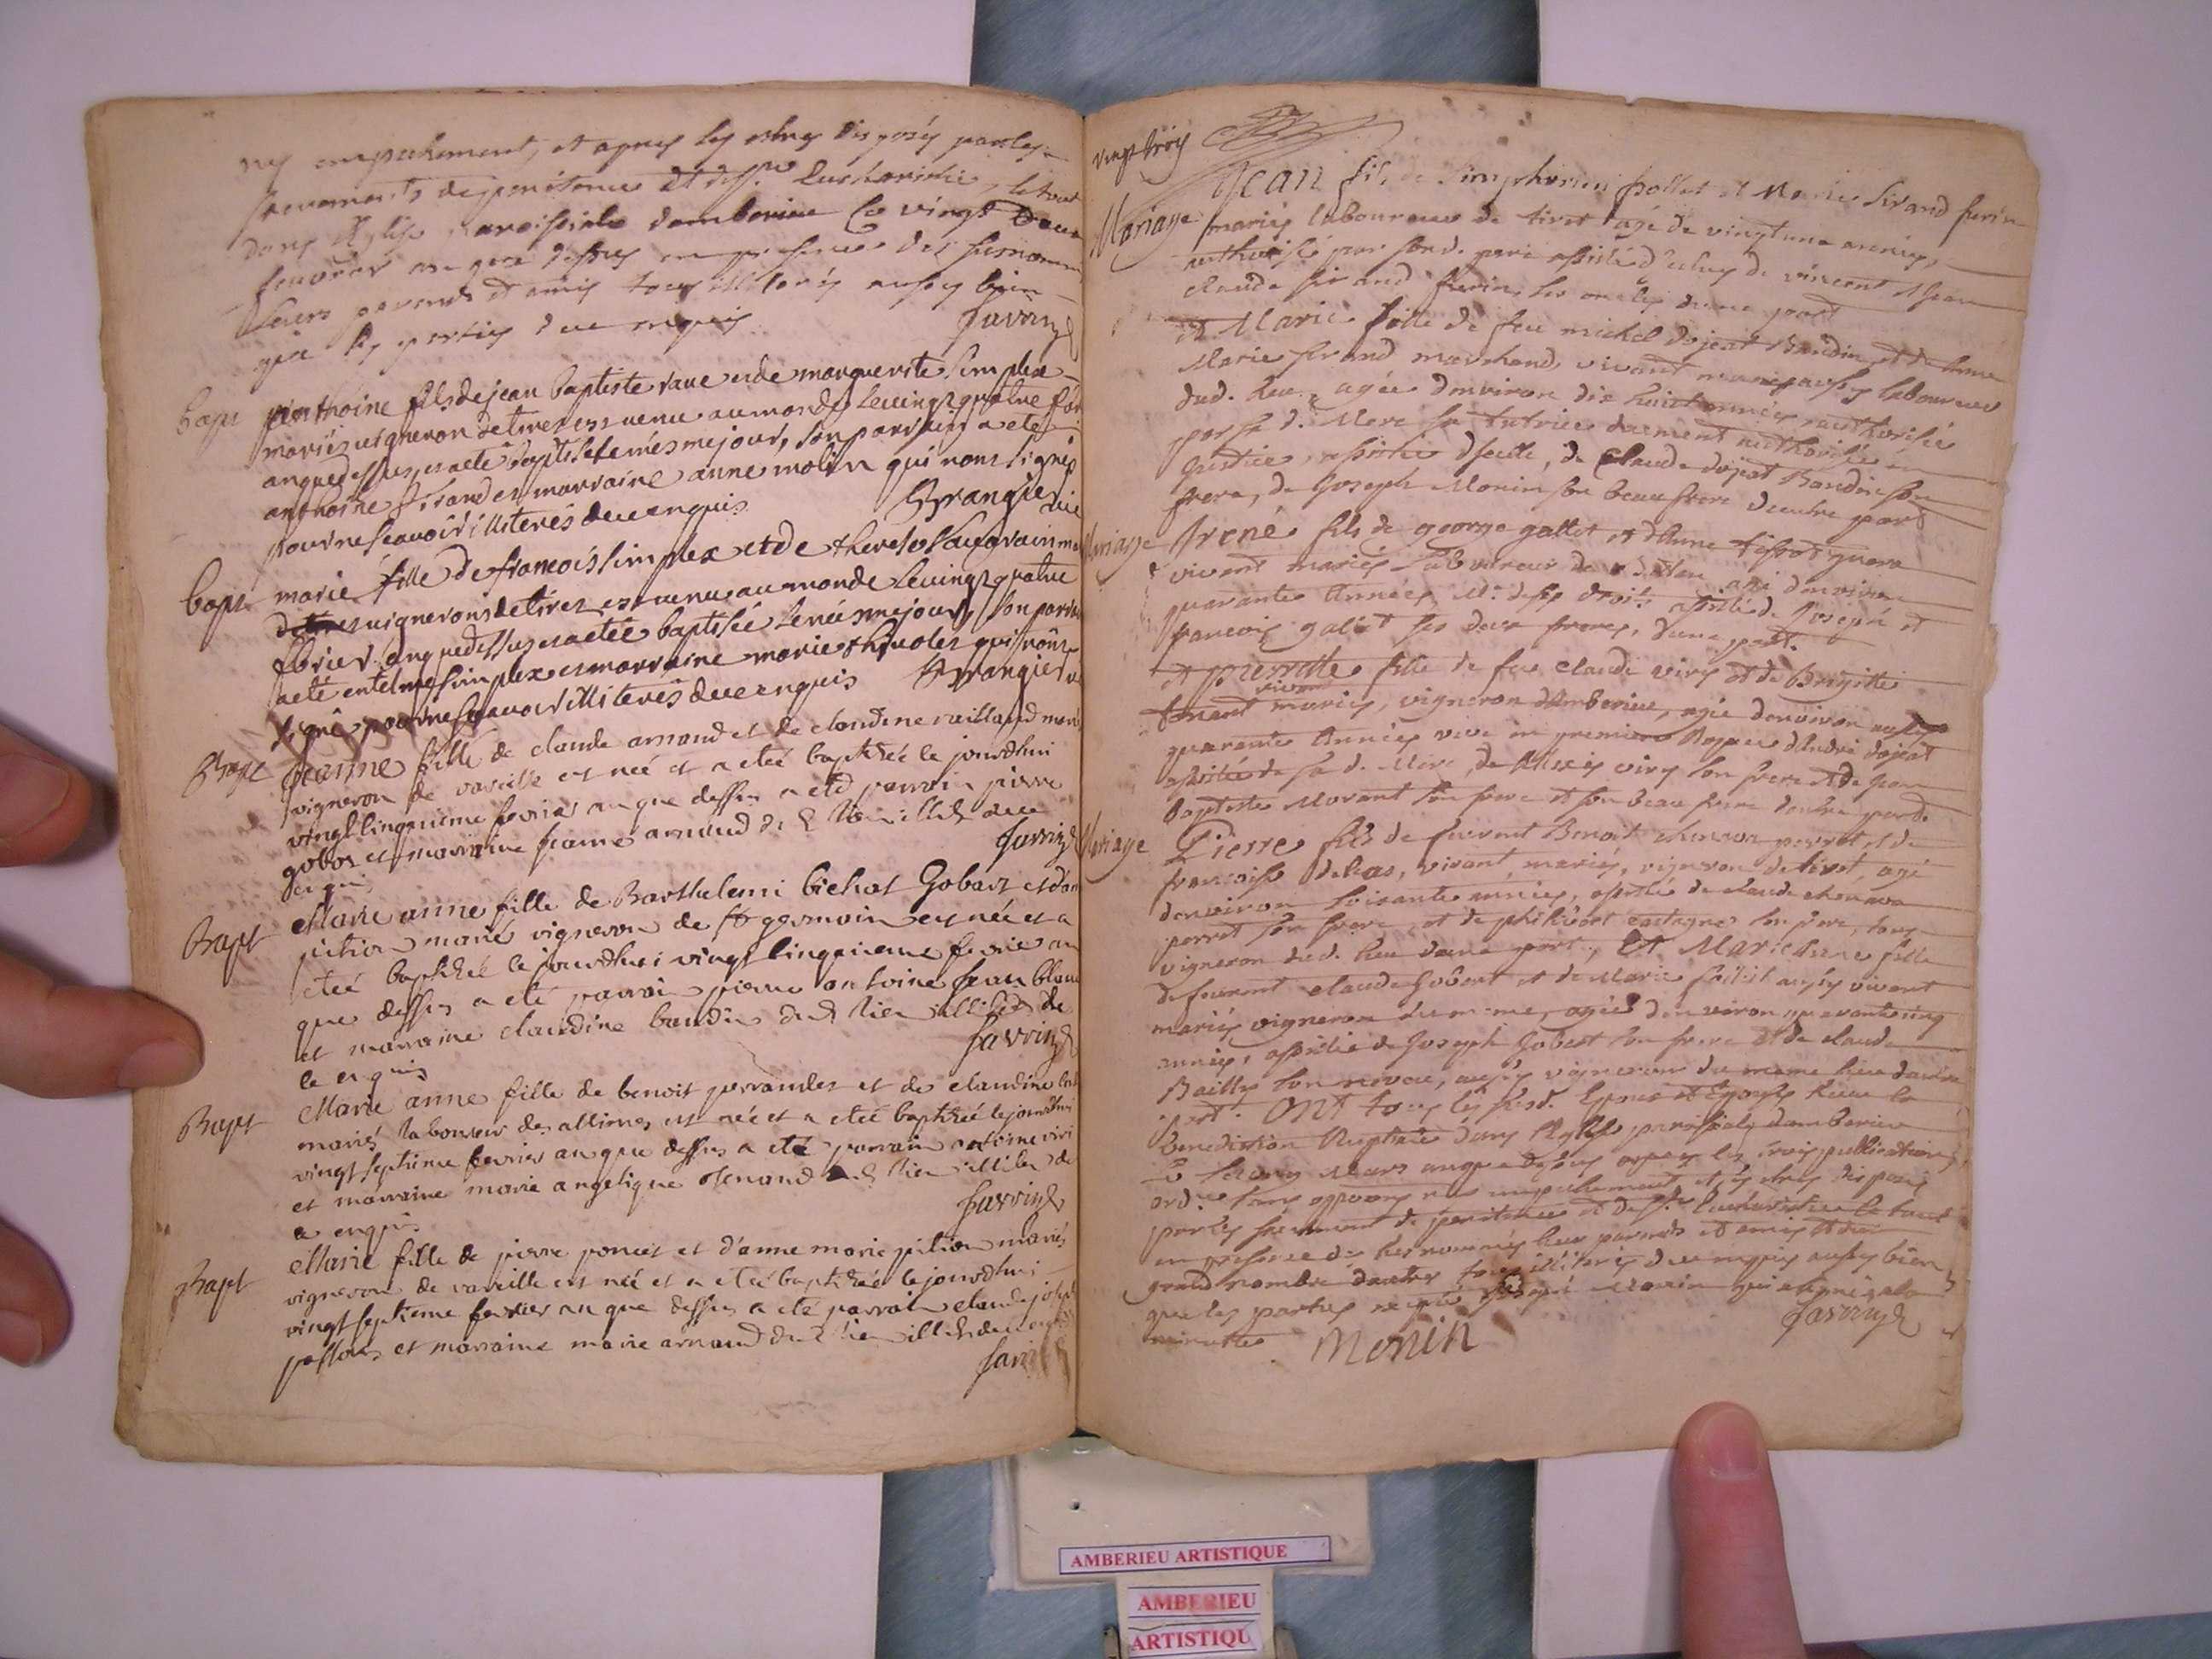 ny empechement, et apres les estres disposés par les
sacremants de penitence et de Ste Eucharistie, le tout
dans l'Eglise paroissiale damberieu ce vingt deux
fevrier an que dessus en presence des
leurs parents et amis tous illiterés aussy bien
que les parties de ce enquis
Savrin
bapt anthoine fils de jean baptiste rave et de marguerite simplex
mariés vigneron de tiret est venu au monde le vingt quatre
an que dessus et a eté baptisé le mesme jour, son parrain a eté
anthoine sirand et marraine anne molin qui n'ont signé
pour ne scavoir illiterés de ce enquis
Grangier vic
bapt marie fille de francois simplex et de
vignerons de tiret est venue au monde le vingt quatre
fevrier an que dessus et a eté baptisée le mesme jour, son parrain
a eté simplex et marraine marie qui n'ont
signé pour ne scavoir illiterés de ce enquis Grangier
Bapt jeanne fille de claude arnaud et de claudine vaillaud mariés
vigneron de vareille est née et a eteé baptisée le jourdhui
vingt cinquieme fevrier an que dessus a eté parrain pierre
gobet et marraine jeanne arnaud du d. lieu illit. de ce
enquis
Savrin
Bapt Marie anne fille de Barthelemi bichat Gobart et d'anne
pition marié vigneron de St germain est née et a
eteé baptisée le jourdhui vingt cinquieme fevrier an
que dessus a eté parrain pierre antoine jean blanc
et marraine claudine baudin dud. lieu illit. de
ce enquis
Savrin
Bapt Marie anne fille de benoit perrandet et de claudine
mariés laboureur des allimes est née et a eteé baptisée le jourdhui
vingt septieme fevrier an que dessus a eté parrain antoine viri
et marraine marie angelique du d. lieu illit. de
ce enquis
Savrin
Bapt Marie fille de pierre poncet et d'anne marie pition mariés
vigneron de vareille est née et a eteé baptisée le jourdhui
vingt septieme fevrier an que dessus a eté parrain claude joseph
et marraine marie arnaud du d. lieu illit. de ce enquis
vingt trois
Mariage Jean fils de Simphorien pollet et Marie Sirand
mariés laboureur de tiret agé de vingt une années,
authorisé par son d. pere assisté d'iceluy de vincent et jean
claude Sirand ses oncles d'une part
et Marie fille de feu michel dojeat Baudin et de
Marie Sirand marchand, vivant mariés aussy laboureur
dud. lieu, agée d'environ dix huict années authorisée
par sa d. Mere sa tutrice duement authorisée en
Justice, assistée d'icelle, de Claude dojeat Baudin son
frere, de Joseph Monin son beau frere d'autre part
Mariage Irené fils de george gallet et d'Anne tissot
vivant mariés laboureur de agé d'environ
quarante Années, Me de ses droits assisté de Joseph et
francois gallet ses deux freres, d'une part.
et pierrette fille de feu claude viry et de Brigitte
vivant
mariés, vigneron d'Amberieu, agée d'environ
quarante Années veuve en premiere Nopces d'André dojeat
assistée de sa d. Mere, de Alexis viry son frere et de Jean
baptiste Morant son frere et son beau frere d'autre part
Mariage Pierre fils de furent Benoit chenavas perret et de
francoise vivant mariés, vigneron de tiret, agé
d'environ soixante années, assisté de claude chenava
perret son frere, et de philibert son frere, tous
vigneron dud. lieu d'une part, Et Marie Anne fille
de furent claude Gobert et de Marie aussy vivant
mariés vigneron du meme, agée d'environ quarante cinq
années, assistée de Joseph Gobert son frere et de claude
Bailly son neveu, aussy vignerons du meme lieu d'autre
part. Ont tous les susd. Epoux et Epouses Receu la
Benediction Nuptiale dans l'Eglise paroissiale damberieu
Mars an que dessus apres les trois publications
ordres sans opposons ny empechement et les estres disposés
par les sacrement de penitence et de Ste Eucharistie le tout
en presence des susnommés leurs parents et amis et d'un
grand nombre d'autres tous illiterés de ce enquis aussy bien
que les parties excepté Joseph Monin qui a signé a la
minutte Monin Savrin
AMBERIEU ARTISTIQUE
AMBERIEU
ARTISTIQU